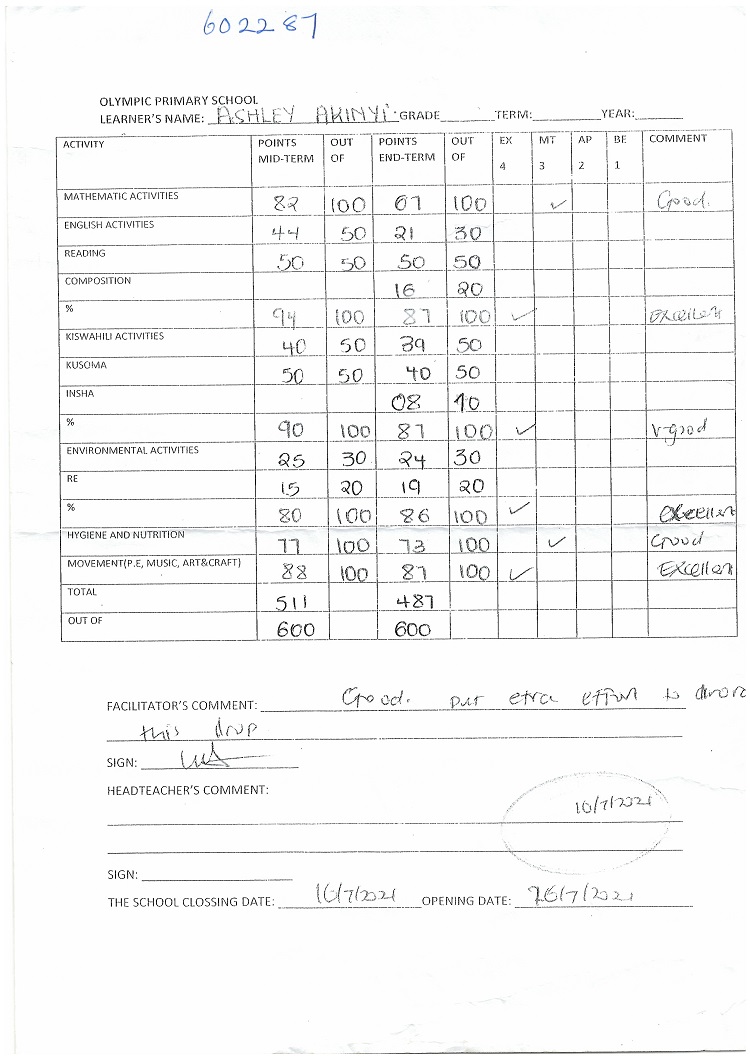 602287
OLYMPIC PRIMARY SCHOOL
LEARNER'S NAME: ASHLEY AKINYI GRADE TERM: YEAR:
ACTIVITY POINTS MID-TERM OUT OF POINTS END-TERM OUT OF EX 4 MT 3 AP 2 BE 1 COMMENT
MATHEMATIC ACTIVITIES 82 100 67 100 ✓ Good.
ENGLISH ACTIVITIES 44 50 21 30
READING 50 50 50 50
COMPOSITION 16 20
% 94 100 87 100 ✓ Excellent
KISWAHILI ACTIVITIES 40 50 39 50
KUSOMA 50 50 40 50
INSHA 08 10
% 90 100 87 100 ✓ V-good
ENVIRONMENTAL ACTIVITIES 25 30 24 30
RE 15 20 19 20
% 80 100 86 100 ✓ Excellent
HYGIENE AND NUTRITION 77 100 73 100 ✓ Good
MOVEMENT(P.E, MUSIC, ART&CRAFT) 88 100 87 100 ✓ Excellent
TOTAL 511 487
OUT OF 600 600
FACILITATOR'S COMMENT: Good. put etra effort to
this drop
SIGN:
HEADTEACHER'S COMMENT:
10/7/2021
SIGN:
THE SCHOOL CLOSSING DATE: 16/7/2021 OPENING DATE: 26/7/2021